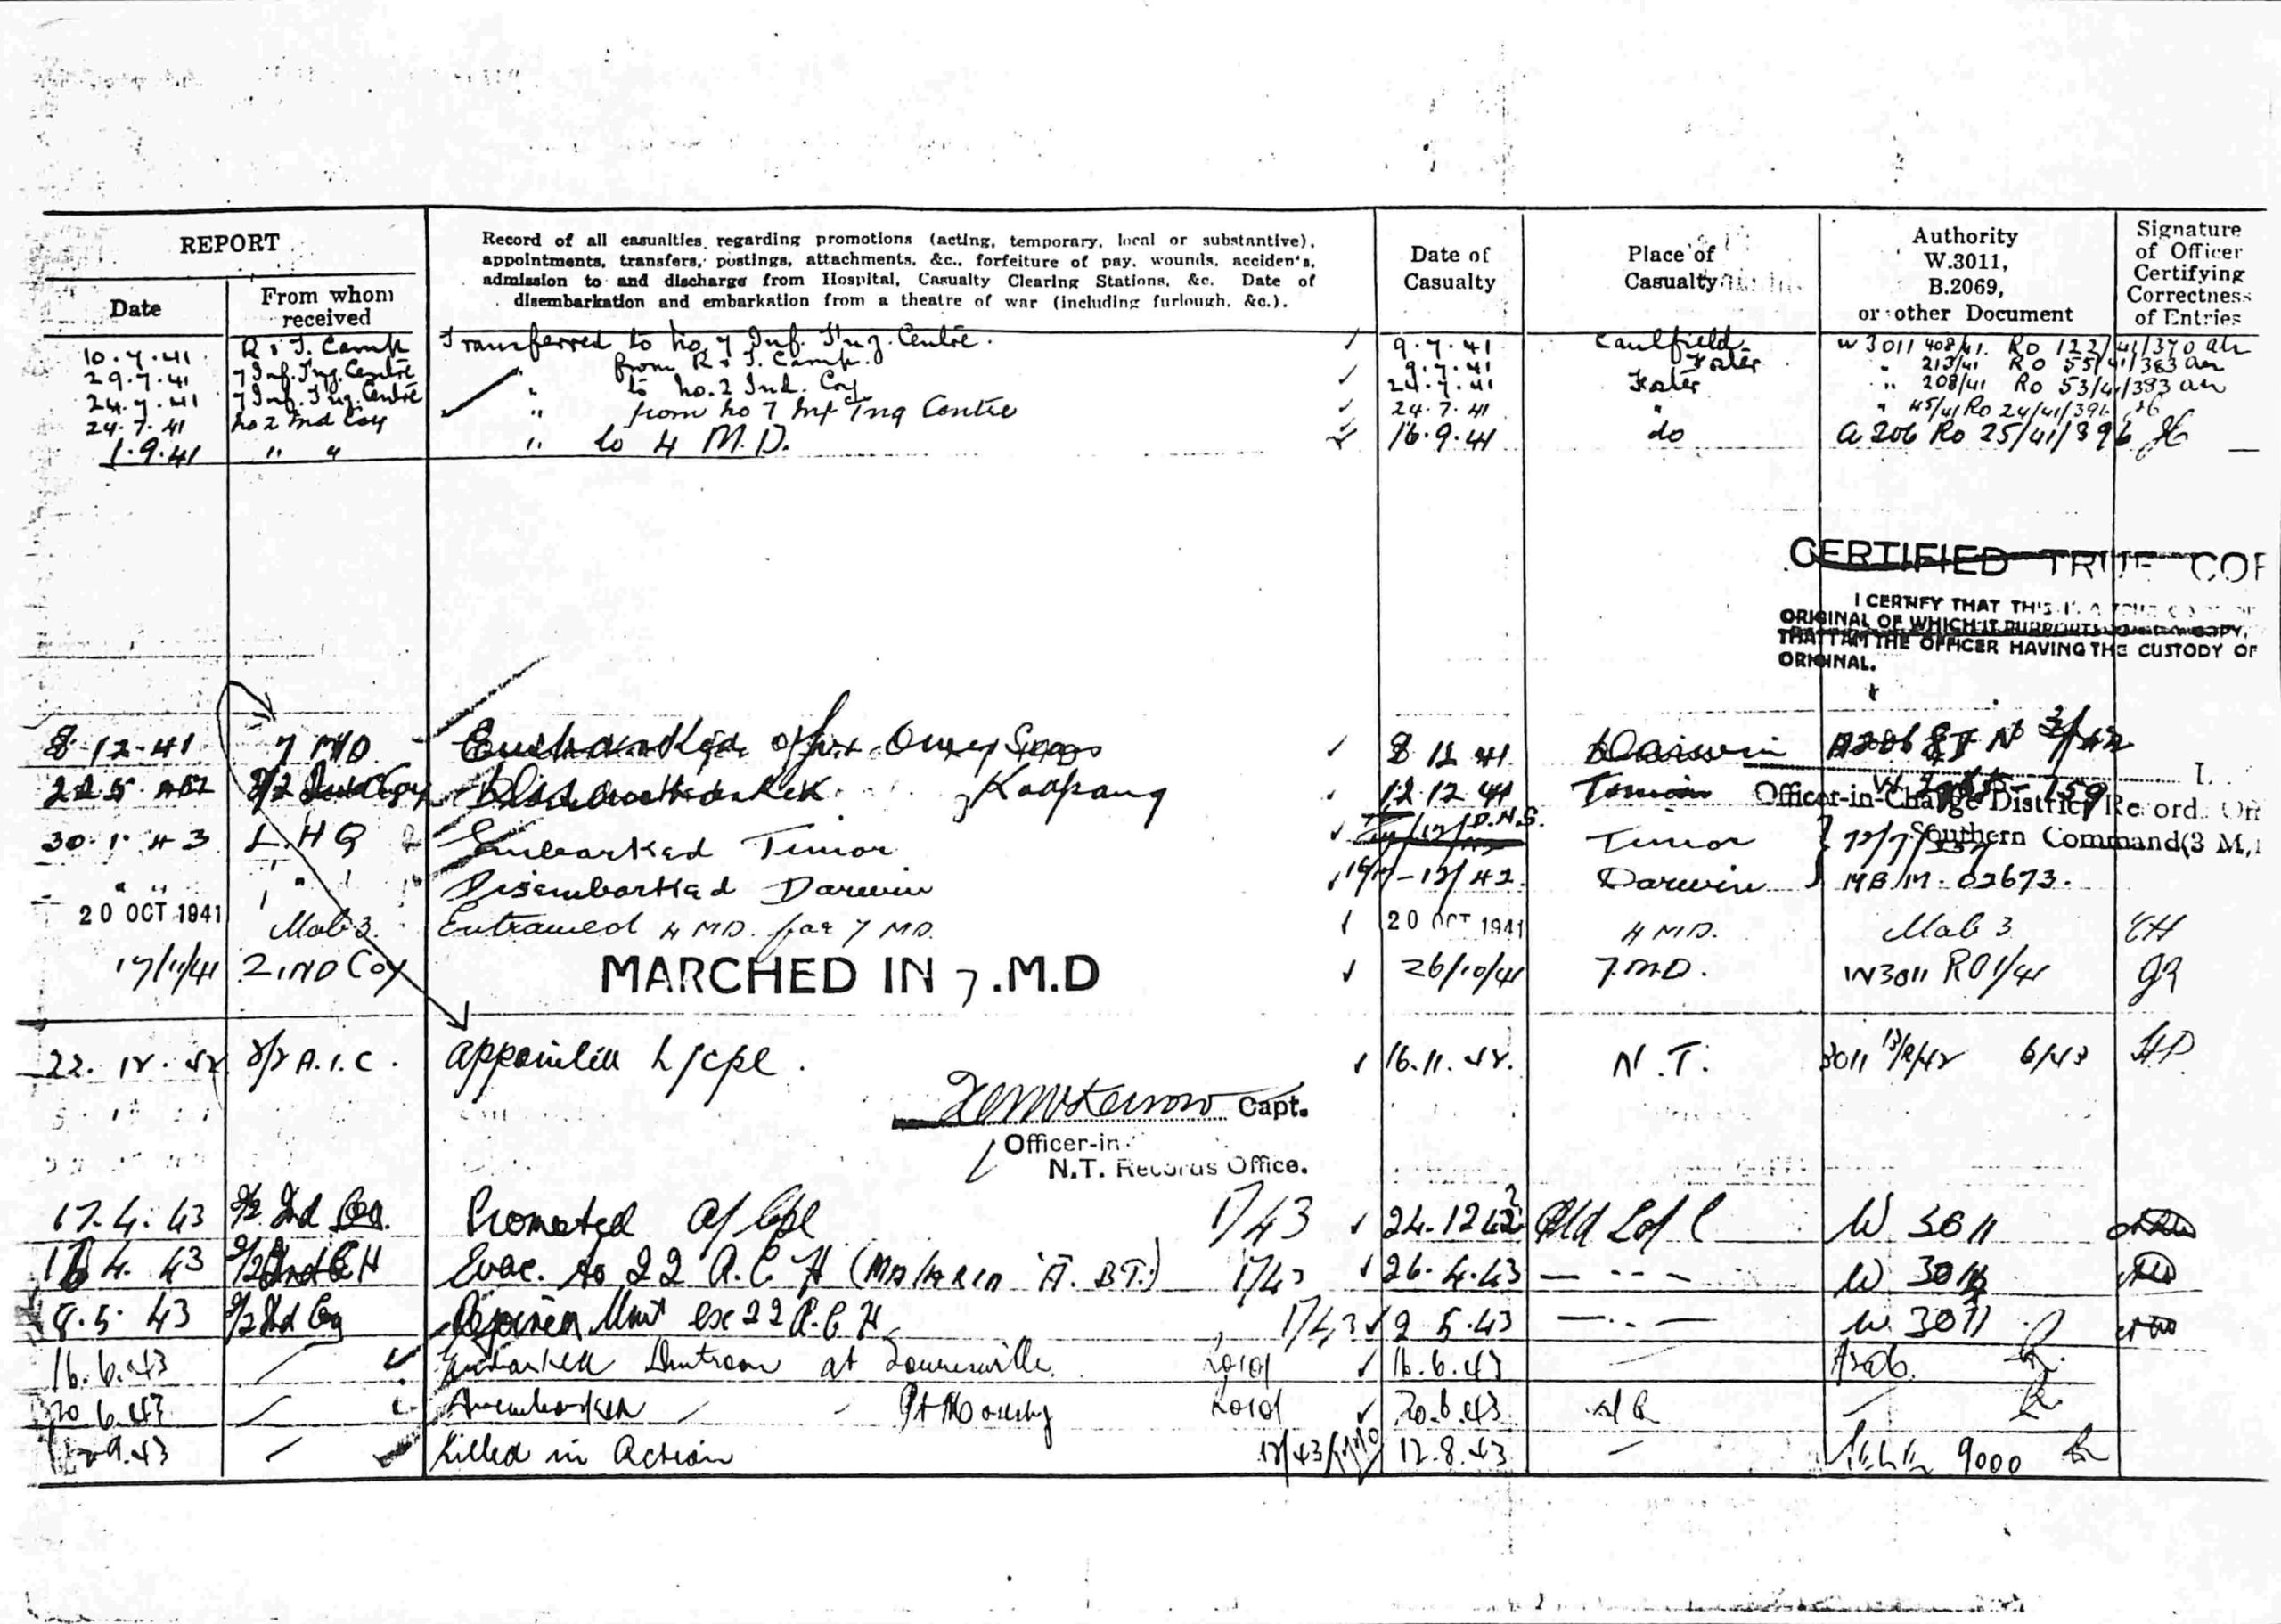 REPORT
Date
From whom
received
Record of all casualties regarding promotions (acting, temporary, local or substantive),
appointments, transfers, postings, attachments, &c., forfeiture of pay, wounds, acciden's,
admission to and discharge from Hospital, Casualty Clearing Stations, &c. Date of
disembarkation and embarkation from a theatre of war (including furlough, &c.).
Date of
Casualty
Place of
Casualty
Authority
W.3011,
B.2069,
or other Document
Signature
of Officer
Certifying
Correctness
of Entries
10.7.41 R & T. Camp Transferred to No. 7 Inf. Tng. Centre. 9.7.41 Caulfield W 3011 408/41. RO 122/41/370
29.7.41 7 Inf. Tng. Centre from R & T. Camp. 9.7.41 Foster " 213/41 RO 55/41/383
24.7.41 7 Inf. Tng. Centre " to No. 2 Ind. Coy 24.7.41 Foster " 208/41 RO 53/41/383
24.7.41 No 2 Ind Coy " from No 7 Inf Tng Centre 24.7.41 " " 45/41 RO 24/41/391
1.9.41 " " " to 4 M.D. 16.9.41 do A 206 RO 25/41/396
CERTIFIED TRUE COP
I CERTIFY THAT THIS IS A TRUE COPY OF
ORIGINAL OF WHICH IT PURPORTS COPY,
THAT I AM THE OFFICER HAVING THE CUSTODY OF
ORIGINAL.
8.12.41 7 MD Embarked for Overseas 8 12 41 Darwin
2/2 Ind Coy Disembarked Koepang 12.12.41 Timor
Officer-in-Charge District Record Off
30.1.43 L.HQ Embarked Timor D.N.S. Timor
Southern Command (3 M.
" " " Disembarked Darwin 12/42 Darwin MB/M. 02673.
20 OCT 1941 Mob 3. Entrained 4 MD. for 7 MD. 20 OCT 1941 4 MD. Mob 3
17/11/41 2 IND Coy MARCHED IN 7.M.D 26/10/41 7.M.D. W3011 RO1/41
22.12.42 2/2 A.I.C. Appointed L/Cpl. 16.11.42. N.T. 3011 6/43
Capt.
Officer-in
N.T. Records Office.
17.4.43 2/2 Ind Coy. Promoted A/Cpl 1/43 24.12.42 Qld L of C W 3011
4.43 Evac. to 22 A.C.H (Malaria B.T.) 1/43 26.4.43 W 3011
8.5.43 2/2 Ind Coy Rejoined Unit ex 22 A.C.H 1/43 2.5.43 W 3011
16.6.43 Embarked Duntroon at Townsville 16.6.43 A206.
20.6.43 Disembarked Pt Moresby 20.6.43
9.43 Killed in Action 12.8.43 9000